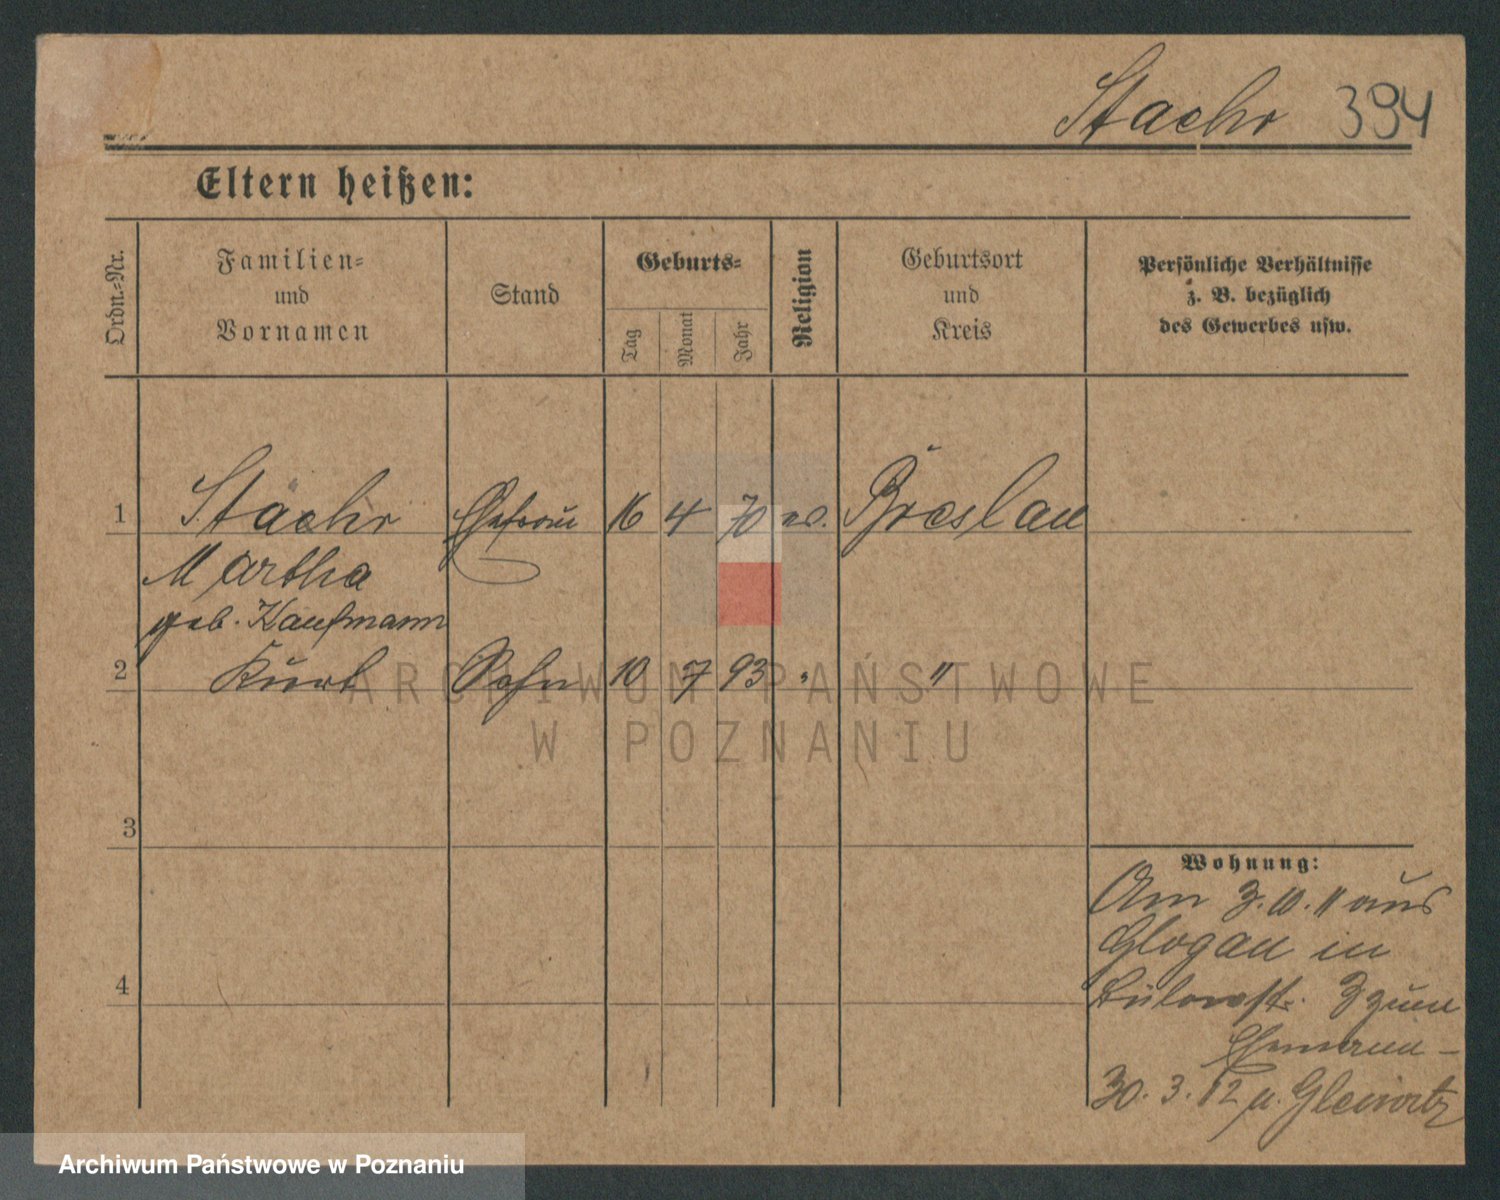 Stachr 394
Eltern heißen:
Ordn.=Nr.
Familien=
und
Vornamen
Stand
Geburts=
Tag
Monat
Jahr
Religion
Geburtsort
und
Kreis
Persönliche Verhältnisse
z. B. bezüglich
des Gewerbes usw.
1 Stachr Ehefrau 16 4 70 ev. Breslau
Martha
geb. Kaufmann
2 Kurt Sohn 10 7 93 " "
3
4
Wohnung:
Am 3.10.11 aus
Glogau in
Bülowst. 3 zum
Ehemann -
30. 3. 12 n. Gleiwitz
ARCHIWUM PAŃSTWOWE
W POZNANIU
Archiwum Państwowe w Poznaniu